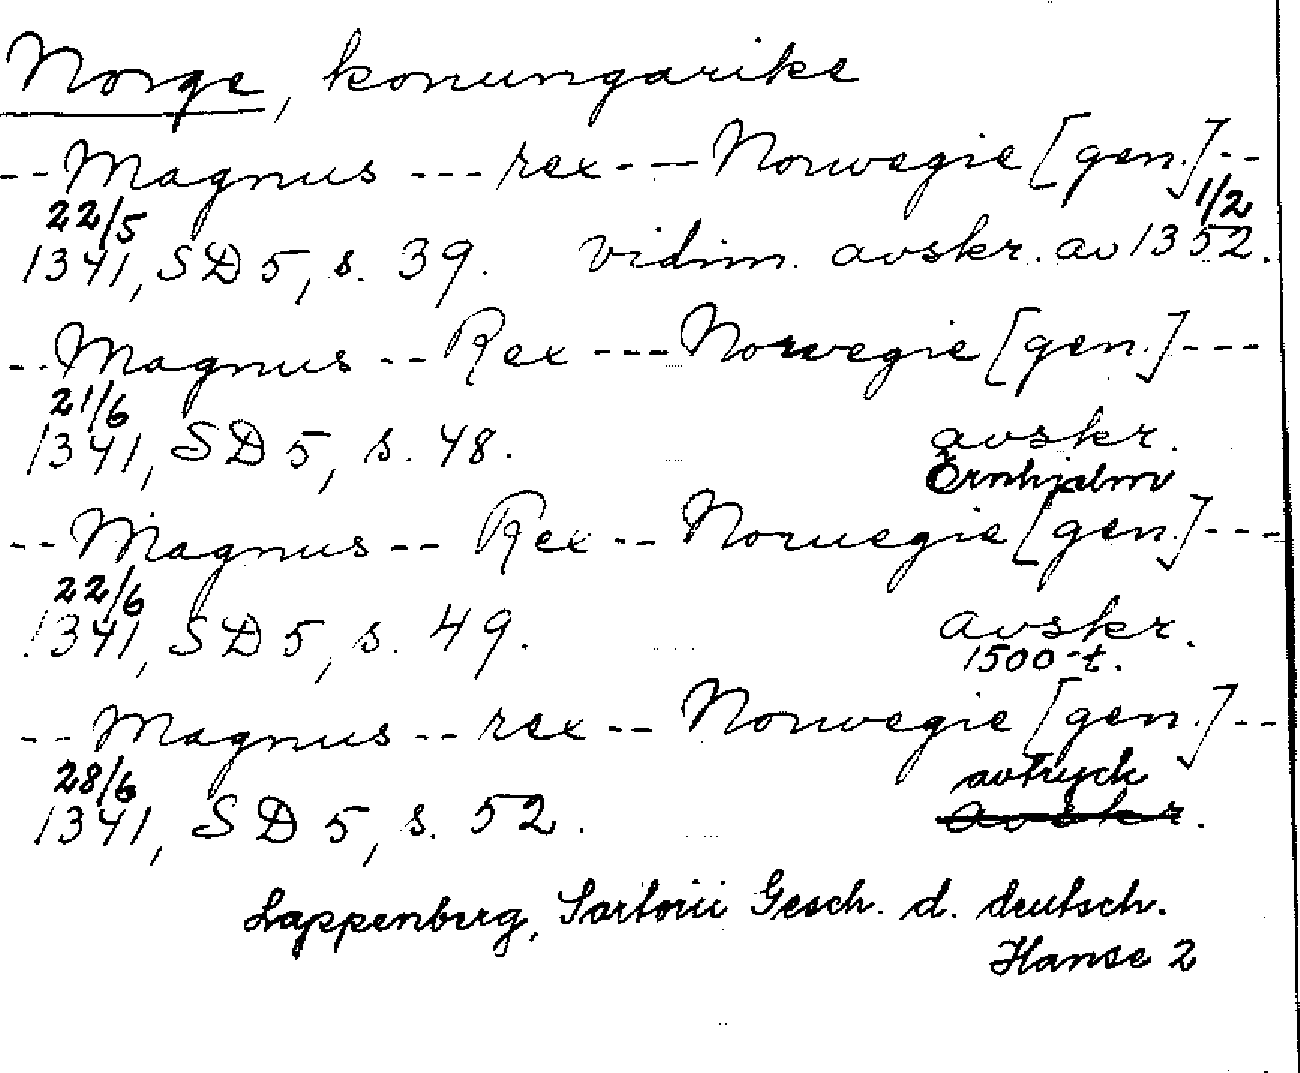 Norge, konungarike
-- Magnus --- rex --- Norwegie [gen.] --
22/5 1/2
1341, SD 5, s. 39. vidim. avskr. av 1352.
-- Magnus -- Rex --- Norwegie [gen.] ---
21/6
1341, SD 5, s. 48. avskr.
Örnhjalm
-- Magnus -- Rex -- Noruegie [gen.] ---
22/6
1341, SD 5, s. 49. avskr.
1500-t.
-- Magnus -- rex -- Norwegie [gen.] --
28/6 avtryck
1341, SD 5, s. 52. avskr.
Lappenberg, Sartorii Gesch. d. deutsch.
Hanse 2